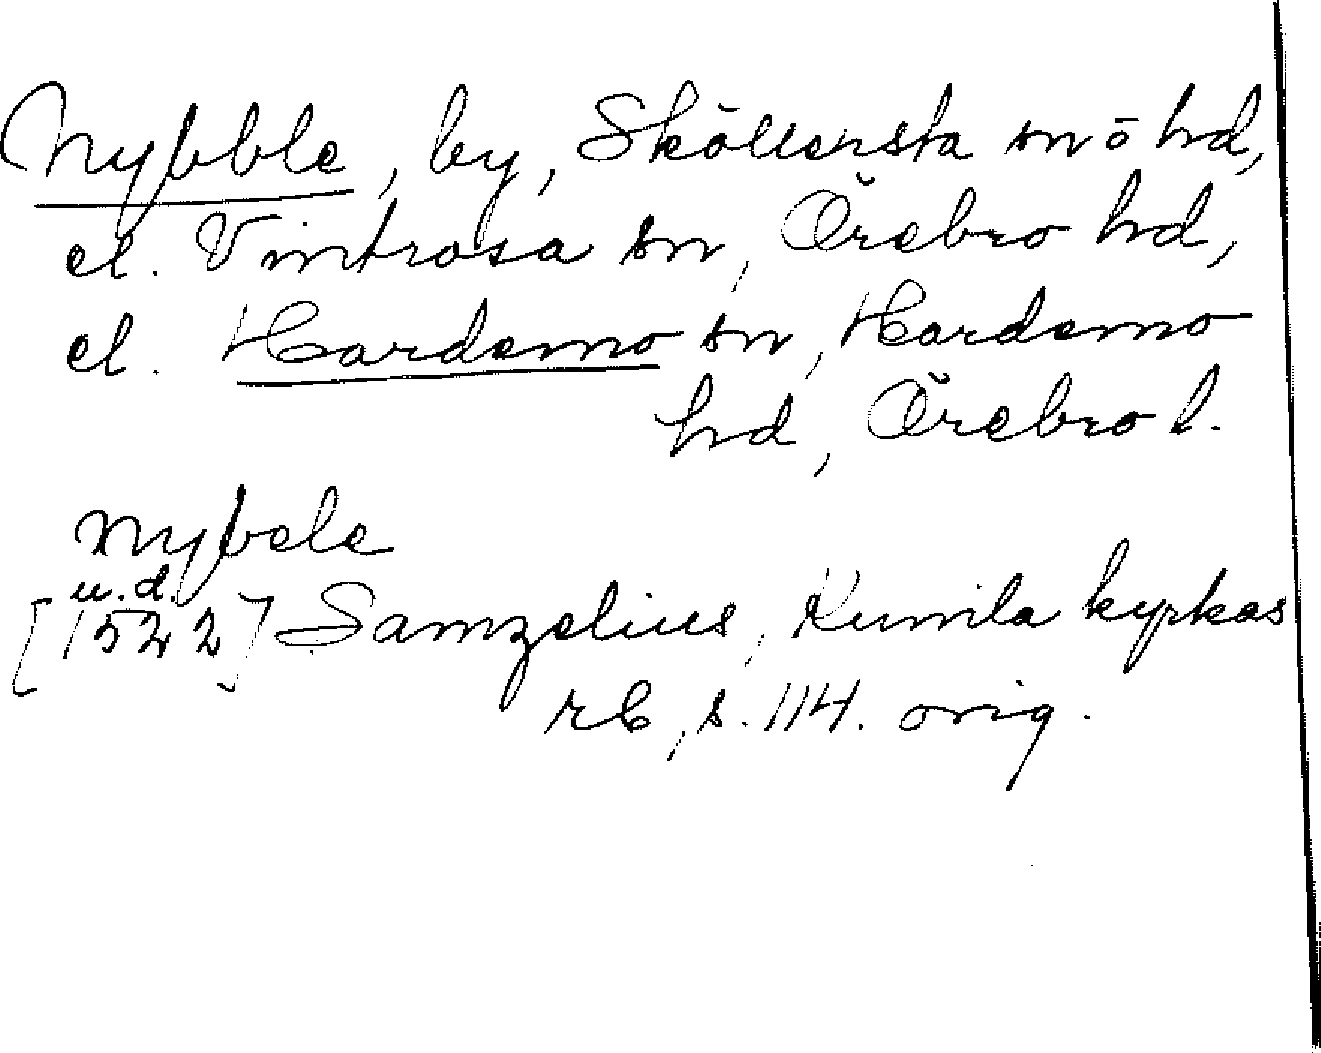 Nybble, by, Sköllersta sn o hd,
el. Vintrosa sn, Örebro hd,
el. Hardemo sn, Hardemo
hd, Örebro l.
nybele
u.d.
[1522] Samzelius, Kumla kyrkas
rb, s. 114. orig.